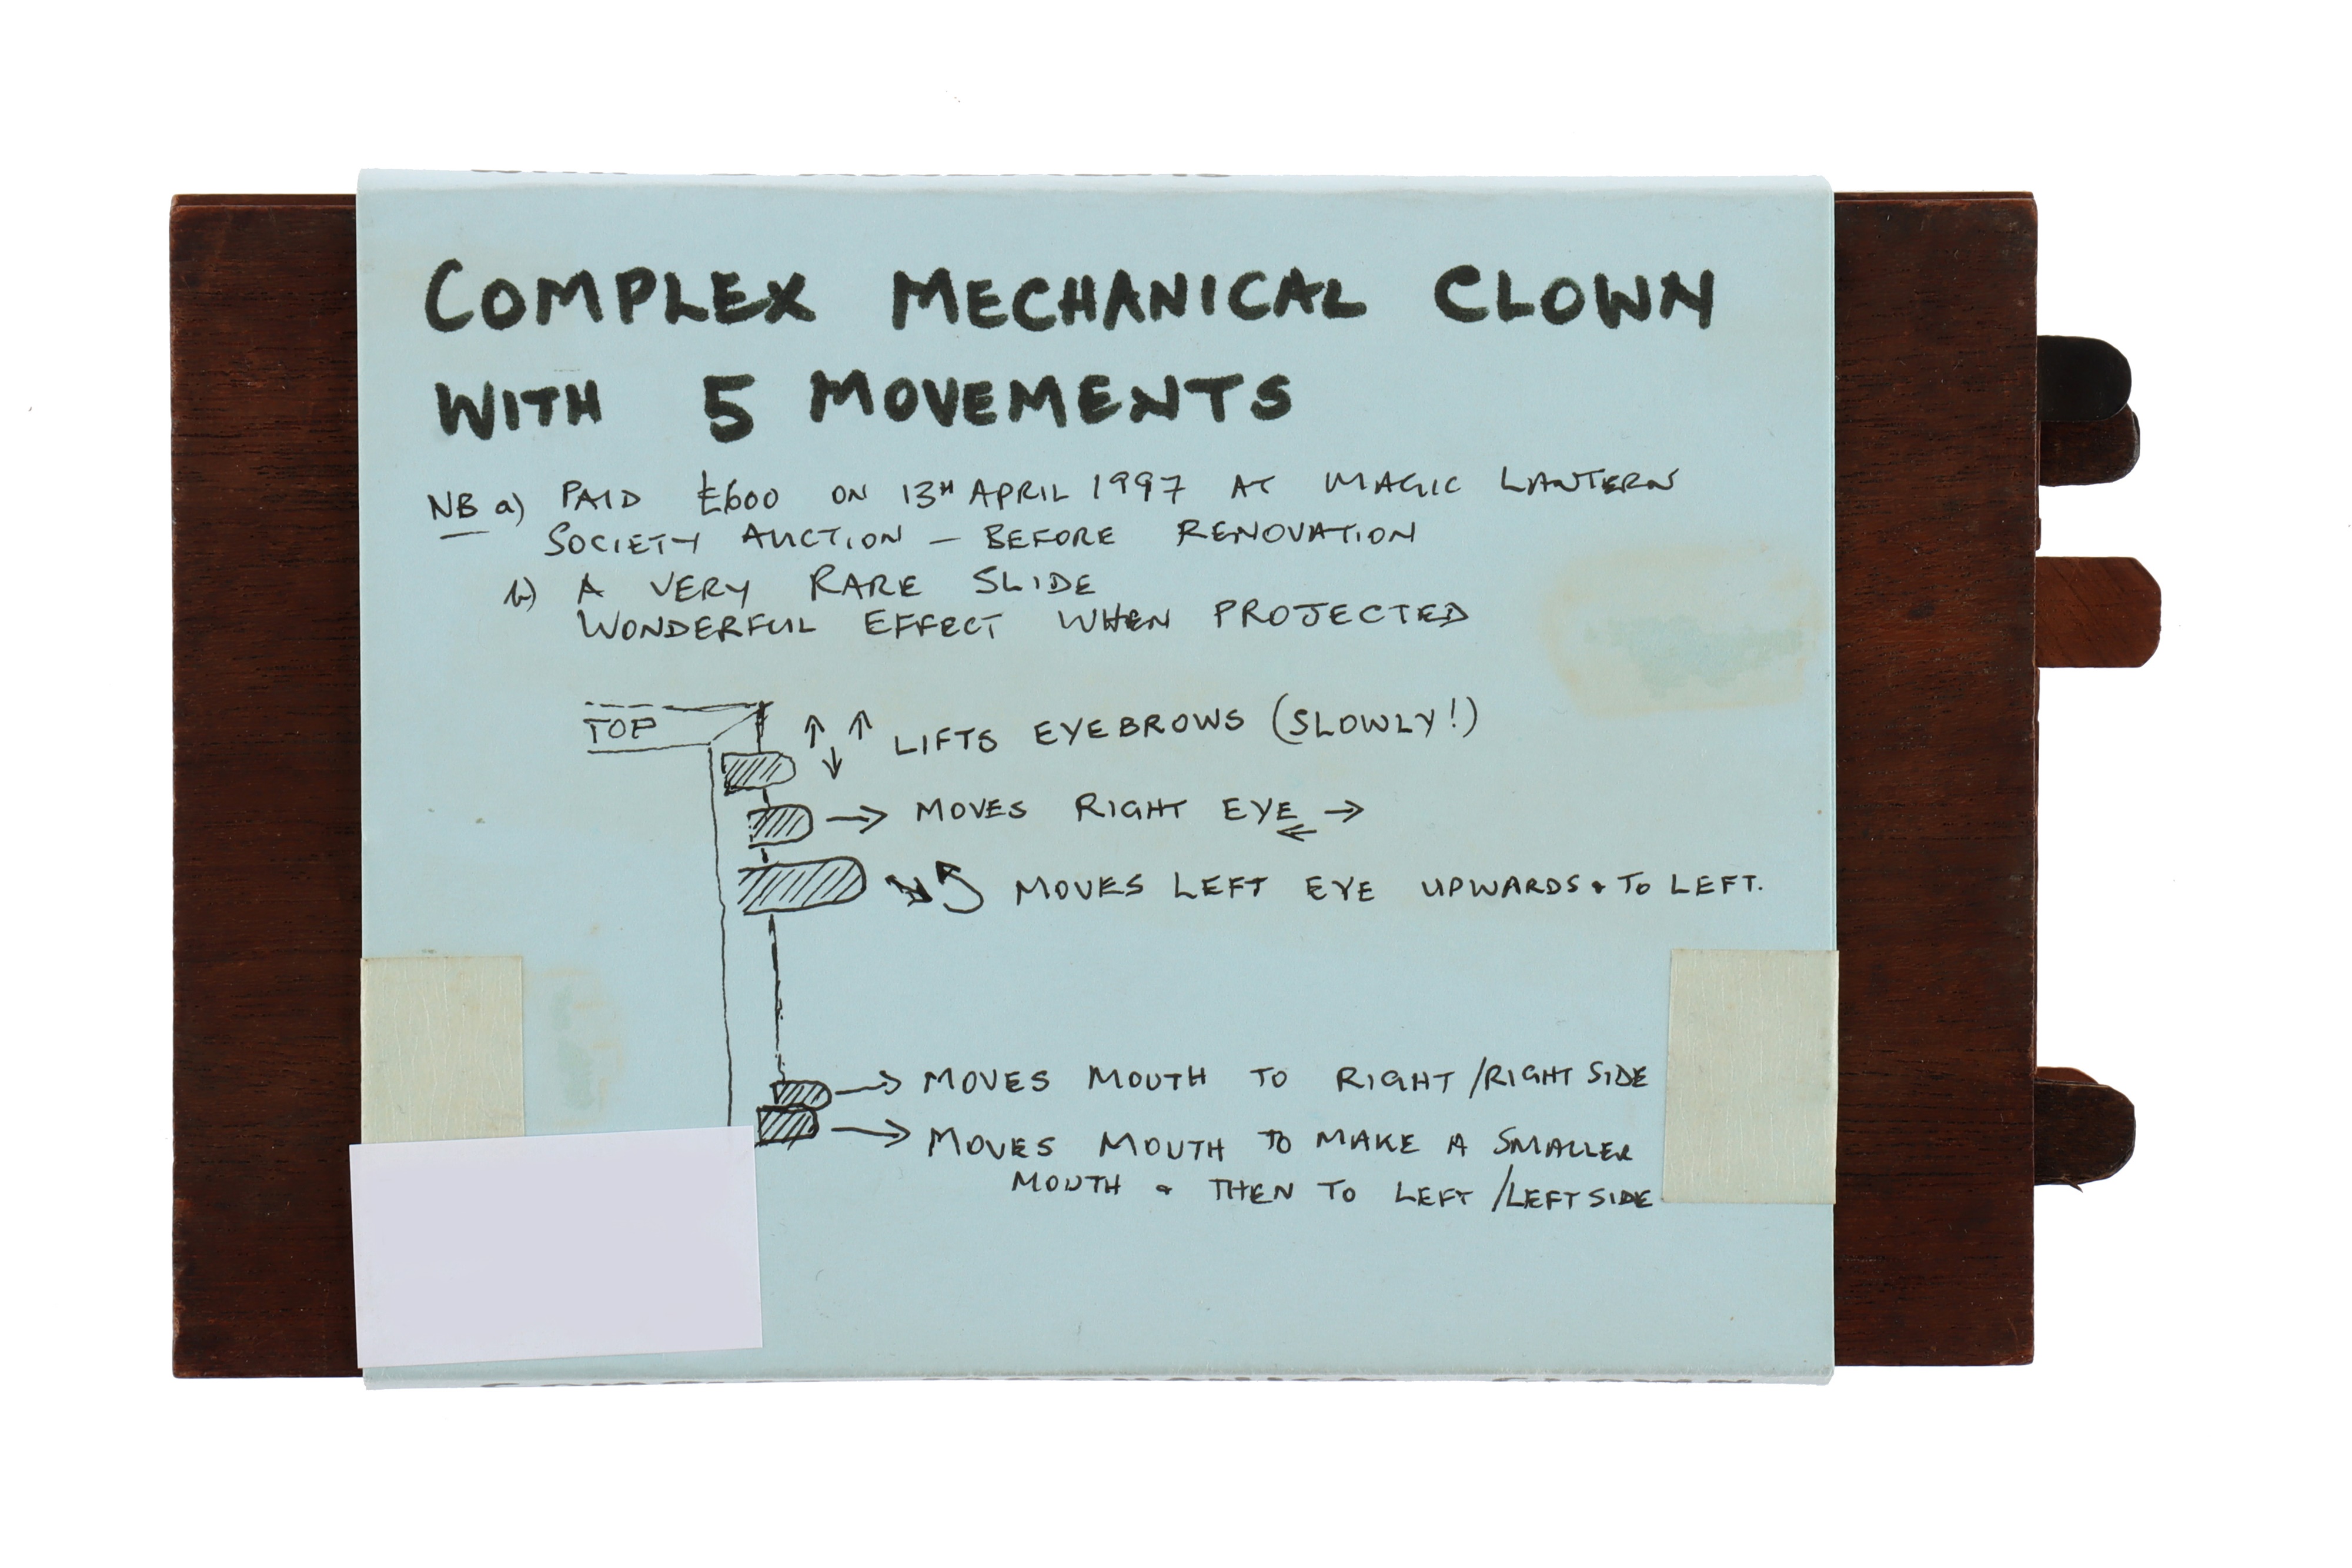 COMPLEX MECHANICAL CLOWN
WITH 5 MOVEMENTS
NB a) PAID £600 ON 13TH APRIL 1997 AT MAGIC LANTERN
SOCIETY AUCTION – BEFORE RENOVATION
b) A VERY RARE SLIDE
WONDERFUL EFFECT WHEN PROJECTED
TOP
↑ ↓ ↑ LIFTS EYEBROWS (SLOWLY!)
→ MOVES RIGHT EYE ← →
MOVES LEFT EYE UPWARDS & TO LEFT.
→ MOVES MOUTH TO RIGHT/RIGHT SIDE
→ MOVES MOUTH TO MAKE A SMALLER
MOUTH & THEN TO LEFT/LEFT SIDE